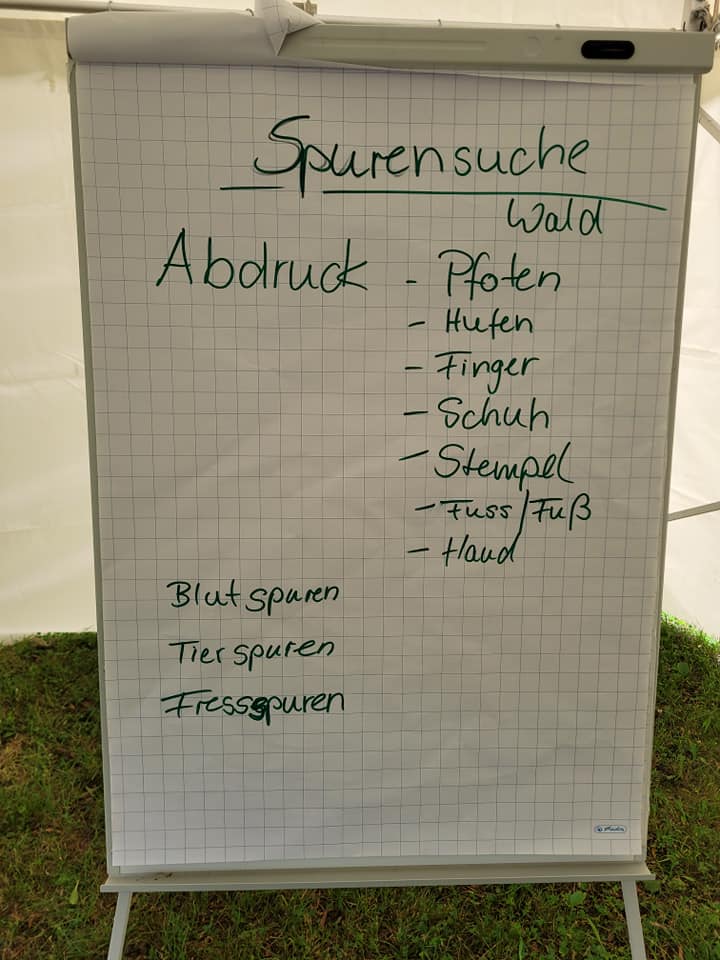 Spurensuche
Wald
Abdruck - Pfoten
- Hufen
- Finger
- Schuh
- Stempel
- Fuss/Fuß
- Hand
Blutspuren
Tierspuren
Fressspuren